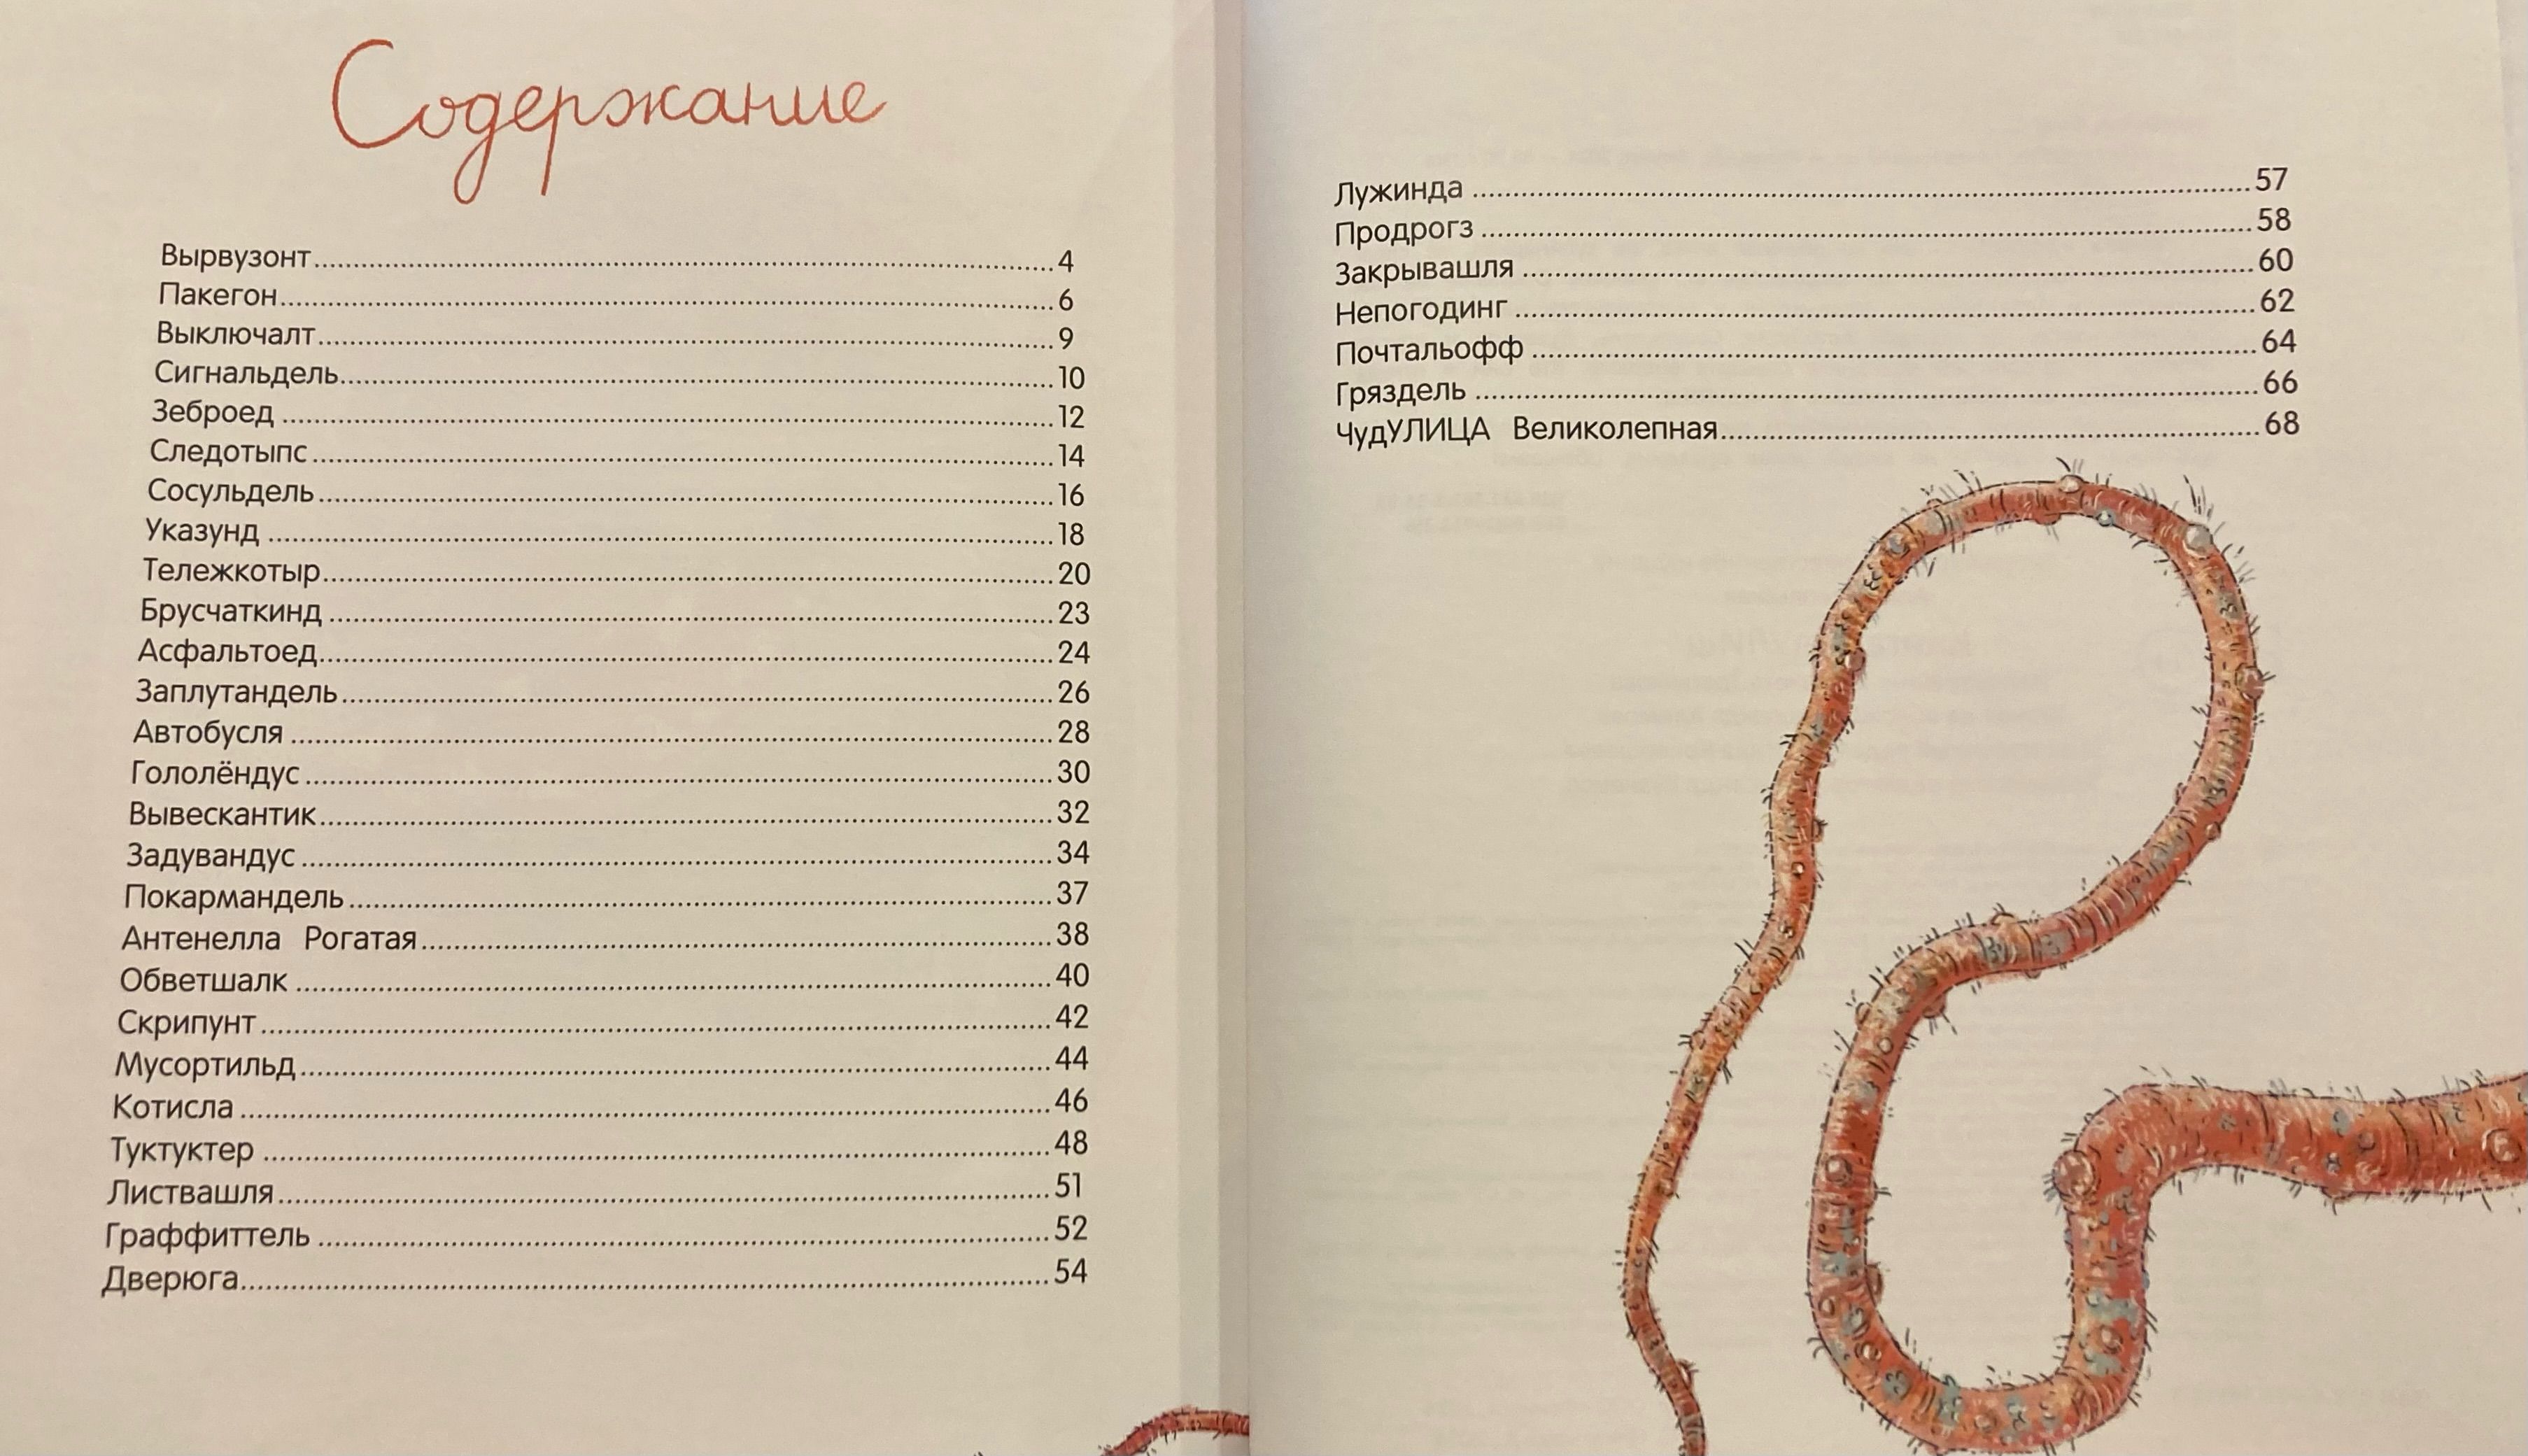 Содержание
Вырвузонт 4
Пакегон 6
Выключалт 9
Сигнальдель 10
Зеброед 12
Следотыпс 14
Сосульдель 16
Указунд 18
Тележкотыр 20
Брусчаткинд 23
Асфальтоед 24
Заплутандель 26
Автобусля 28
Гололёндус 30
Вывескантик 32
Задувандус 34
Покармандель 37
Антенелла Рогатая 38
Обветшалк 40
Скрипунт 42
Мусортильд 44
Котисла 46
Туктуктер 48
Листвашля 51
Граффиттель 52
Дверюга 54
Лужинда 57
Продрогз 58
Закрывашля 60
Непогодинг 62
Почтальофф 64
Гряздель 66
ЧудУЛИЦА Великолепная 68